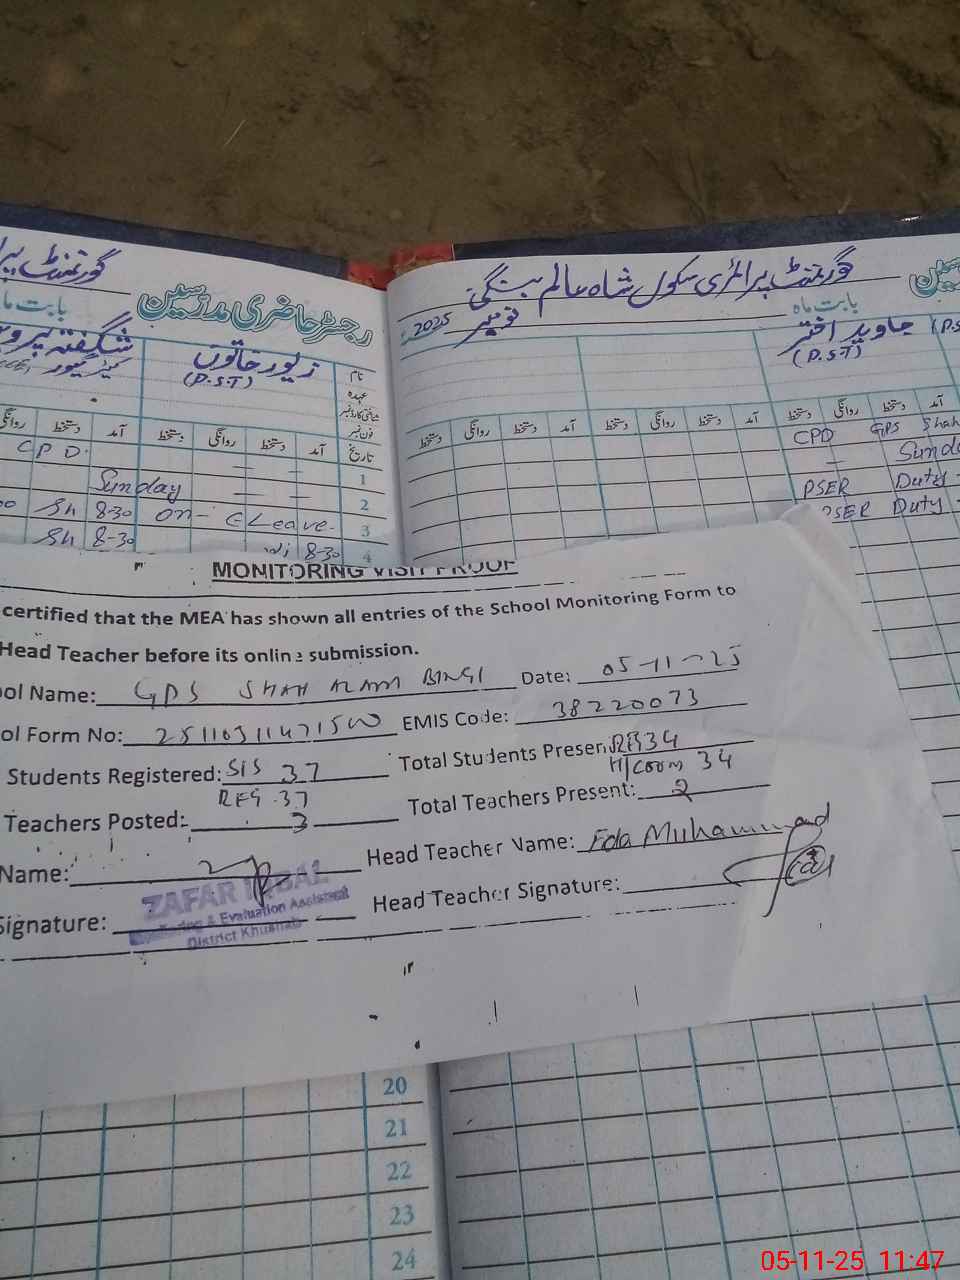 گورنمنٹ پرائمری سکول شاہ عالم بنگی
نومبر 2025
بابت ماہ
جاوید اختر
(P.S.T)
آمد دستخط روانگی دستخط آمد دستخط روانگی دستخط آمد دستخط روانگی دستخط
CPD GPS Shah
Sunda
PSER Duty
PSER Duty
گورنمنٹ پرا
رجسٹر حاضری مدرسین
بابت ماہ
نام زیور خاتون شگفتہ پرو
(P.S.T)
عہدہ
فون نمبر
تاریخ آمد دستخط روانگی دستخط آمد دستخط روانگی
1 — — CPD.
2 — — Sunday
3 On - C Leave. 8-30 Sh 00
4 8-30 8-30 Sh
MONITORING VISIT PROOF
certified that the MEA has shown all entries of the School Monitoring Form to
Head Teacher before its online submission.
ool Name: GPS SHAH ALAM BINGI Date: 05-11-25
ol Form No: EMIS Code: 38220073
Students Registered: SIS 37 Total Students Present: 34
REG. 37 H/Coom 34
Teachers Posted: 3 Total Teachers Present: 2
Name: Head Teacher Name: Fda Muhammad
Signature: Head Teacher Signature:
ZAFAR IQBAL
Monitoring & Evaluation Assistant
District Khushab
20
21
22
23
24
05-11-25 11:47